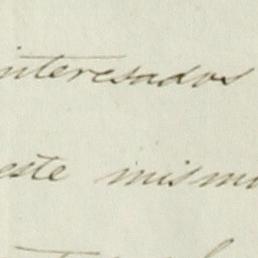 interesados
este mismo